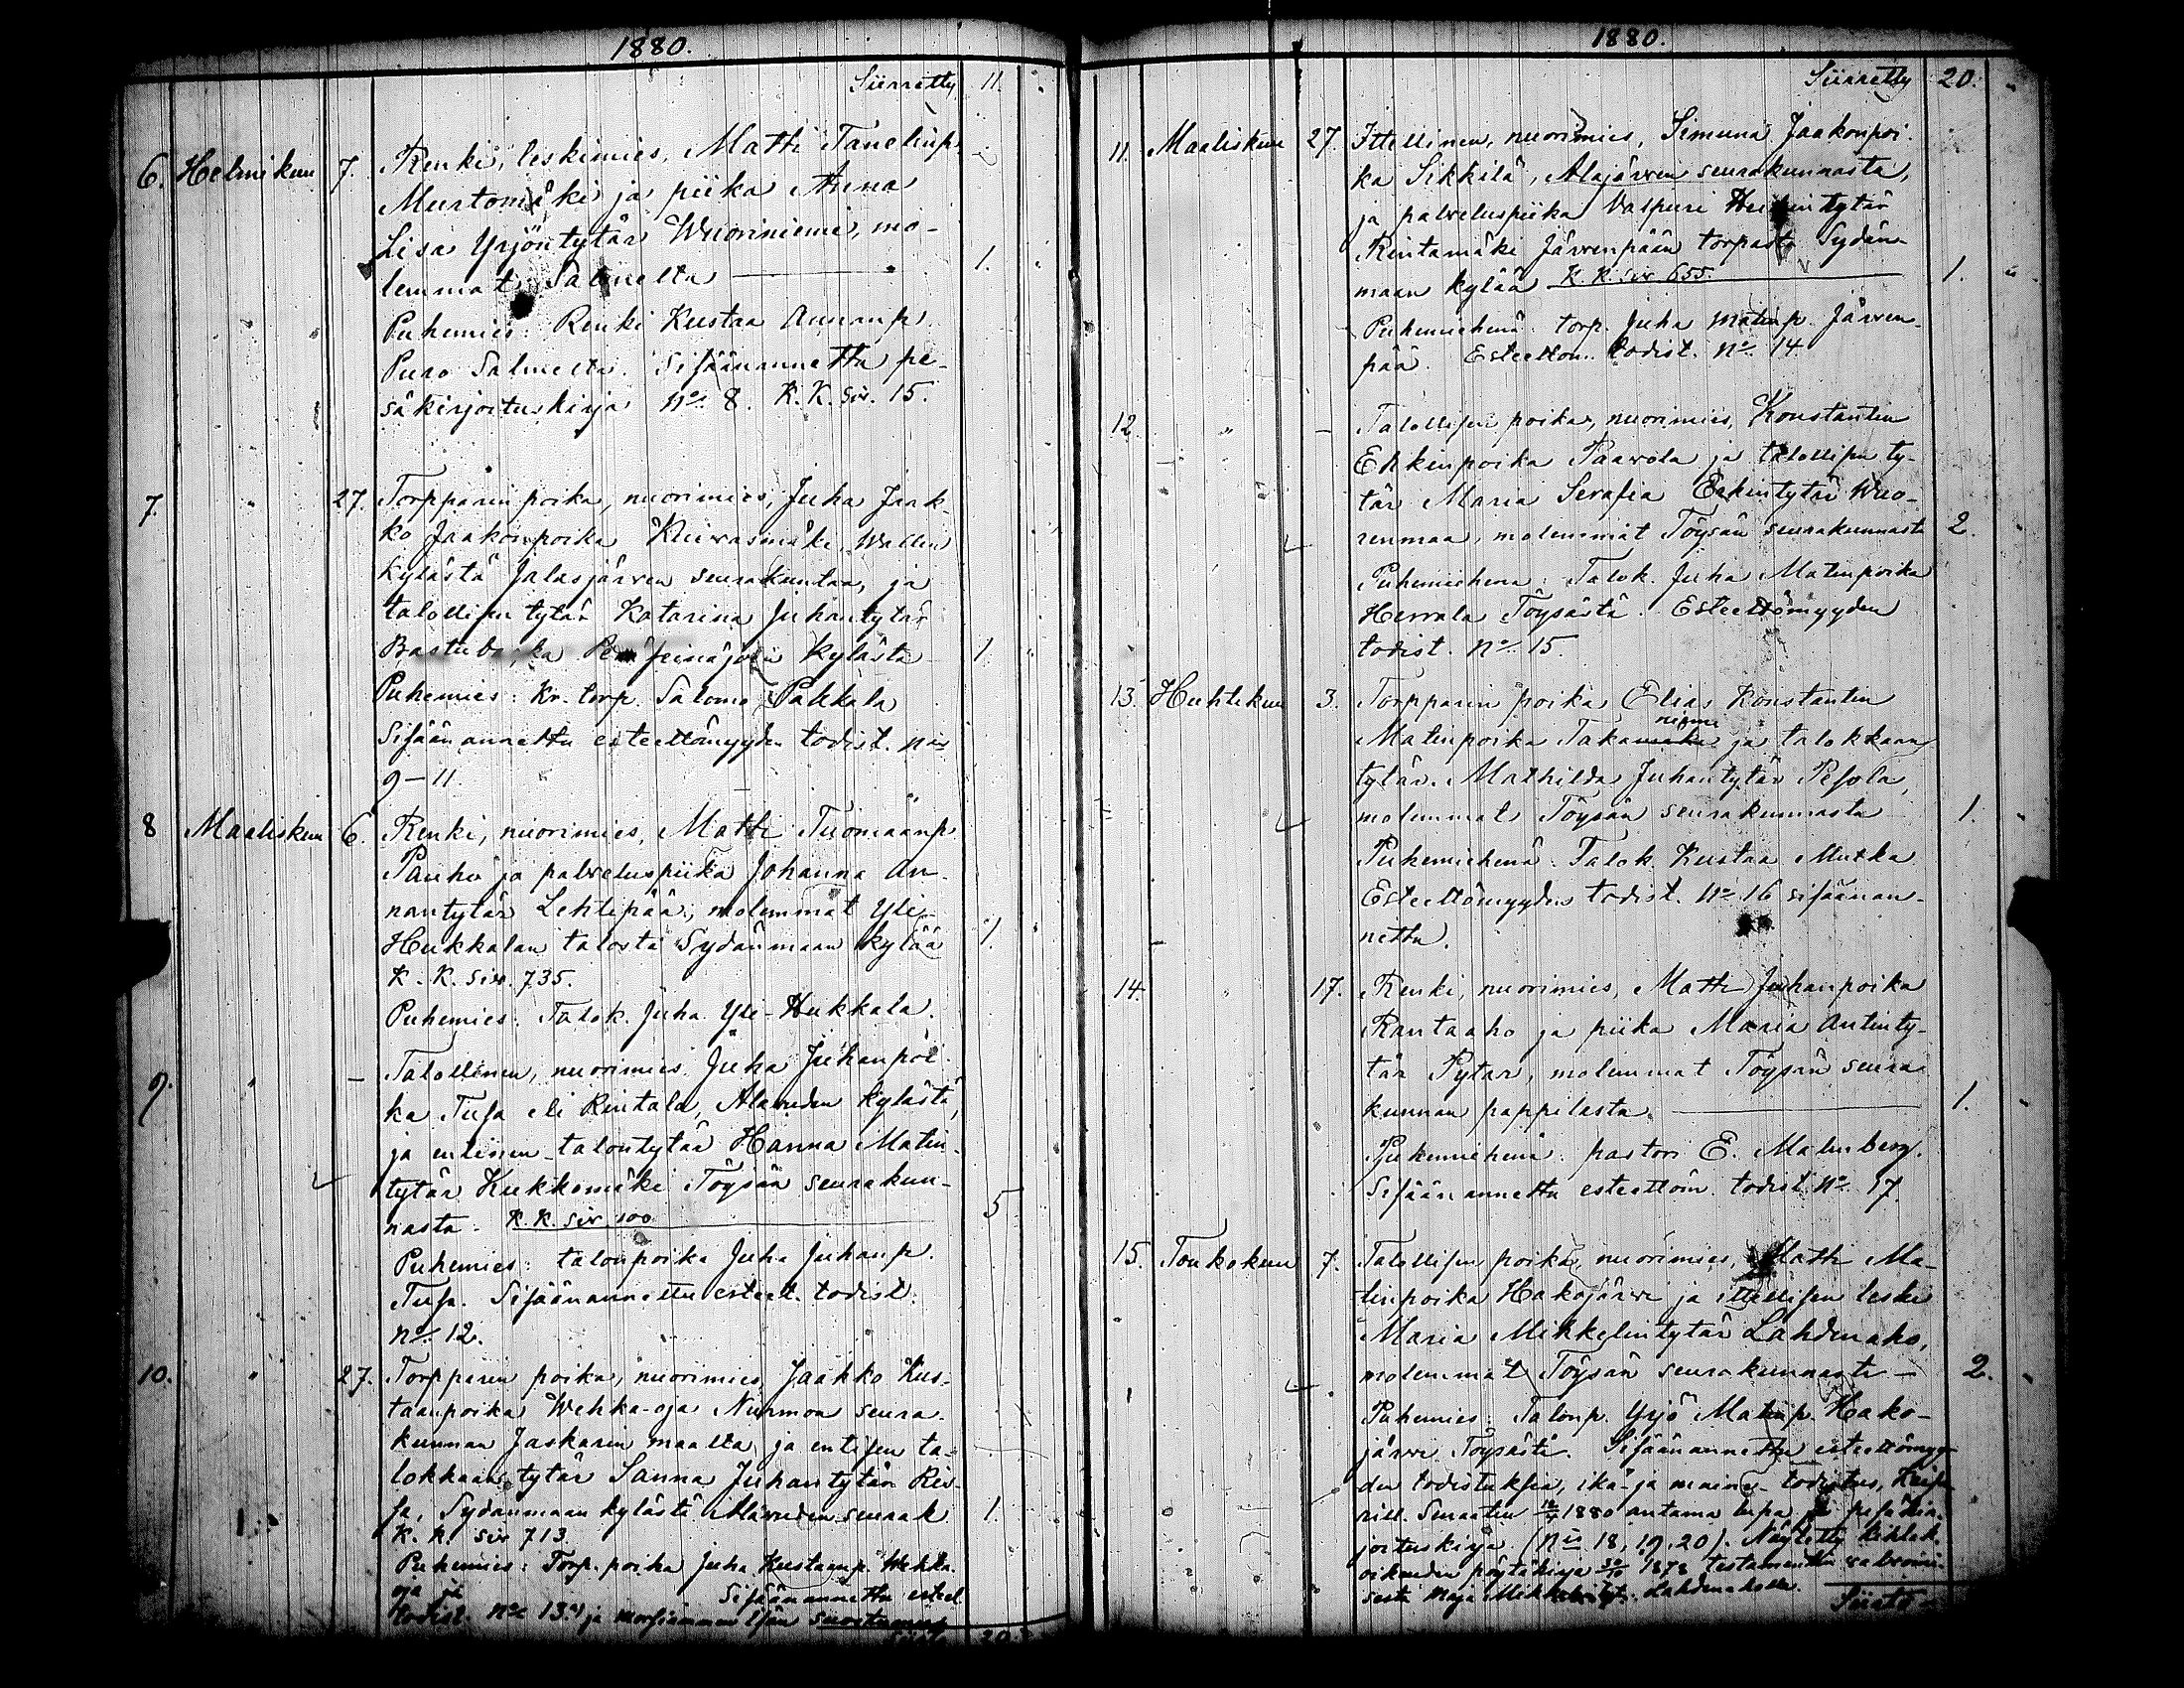 1880.
Siirretty 11.
6. Helmikuu 7. Renki, leskimies, Matti Tanelinp.
Murtomäki ja piika Anna
Lisa Yrjöntytär Wuoriniemi, mo-
lemmat Salmelta 1.
Puhemies: Renki Kustaa Annanp.
Puro Salmelta. Sisäänannettu pe-
säkirjoituskirja No 8. K. K. siv. 15.
7. " 27. Torpparin poika, nuorimies, Juha Jaak-
ko Jaakonpoika Kuivasmäki Wallin
kylästä Jalasjärven seurakuntaa, ja
talollisen tytär Katarina Juhantytär
Peräseinäjoen kylästä 1.
Puhemies: Kr. torp. Salomo Pakkala
Sisäänannettu esteettömyyden todist. No
9-11.
8 Maaliskuu 6. Renki, nuorimies, Matti Tuomaanp.
Panho ja palveluspiika Johanna An-
nantytär Lehtipää, molemmat Yli-
Hukkalan talosta Sydänmaan kylää 1.
K. K. siv. 735.
Puhemies: Talok. Juha Yli-Hukkala.
9. " - Talollinen, nuorimies Juha Juhanpoi-
ka Tusa eli Rintala, Alavuden kylästä,
ja entinen talontytär Hanna Matin-
tytär Kukkomäki Töysän seurakun-
nasta. K. K. siv. 100 5
Puhemies: talonpoika Juha Juhanp.
Tusa. Sisäänannettu esteet. todist.
No 12.
10. " 27. Torpparin poika, nuorimies, Jaakko Kus-
taanpoika Wehka-oja Nurmon seura-
kunnan Jaskarin maalta ja entisen ta-
lokkaan tytär Sanna Juhantytär Rii-
sa, Sydänmaan kylästä Alavuden seurak 1.
K. K. siv 713
Puhemies: Torp. poika Juha Kustaanp. Wehka-
oja Sisäänannettu esteet
todist. No 13 ja morsiammen isän suostumus
20.
1880.
Siirretty 20.
11. Maaliskuu 27. Ittellinen, nuorimies, Simuna Jaakonpoi-
ka Sikkilä, Alajärven seurakunnasta,
ja palveluspiika Valpuri
Rintamäki Järvenpään torpasta Sydän-
maan kylää K. K. siv. 655. 1.
Puhemiehenä: torp. Juha Matinp. Järven-
pää. Esteettöm. todist. No 14.
12. " - Talollisen poika, nuorimies, Konstantin
Erkinpoika Paavola ja talollisen ty-
tär Maria Serafia Erkintytär Wuo-
renmaa, molemmat Töysän seurakunnasta 2.
Puhemiehenä: Talok. Juha Matinpoika
Herrala Töysästä. Esteettömyyden
todist. No 15.
13. Huhtikuu 3. Torpparin poika Elias Konstantin
niemi
Matinpoika Takamäki ja talokkaan
tytär Mathilda Juhantytär Pesola,
molemmat Töysän seurakunnasta 1.
Puhemiehenä. Talok. Kustaa Mutka
Esteettömyyden todist. No 16 sisäänan-
nettu.
14. " 17. Renki, nuorimies, Matti Juhanpoika
Rantaaho ja piika Maria Antinty-
tär Pytar, molemmat Töysän seura-
kunnan pappilasta. 1.
Puhemiehenä: pastori E. Malmberg.
Sisäänannettu esteettöm. todist. No 17.
15. Toukokuu 7. Talollisen poika, nuorimies, Matti Ma-
tinpoika Hakojärvi ja ittellisen leski
Maria Mikkelintytär Lahdenaho,
molemmat Töysän seurakunnasta - 2.
Puhemies: Talonp. Yrjö Matinp. Hako-
järvi Töysästä. Sisäänannettu esteettömyy-
den todistuksia, ikä- ja
rill. Senaatin 1880 antama lupa pesäkir-
joituskirja (No 18, 19, 20). Näytetty kihlak.
oikeuden pöytäkirja 1878 testamentin
Maja Lahdenaholle.
Siirto